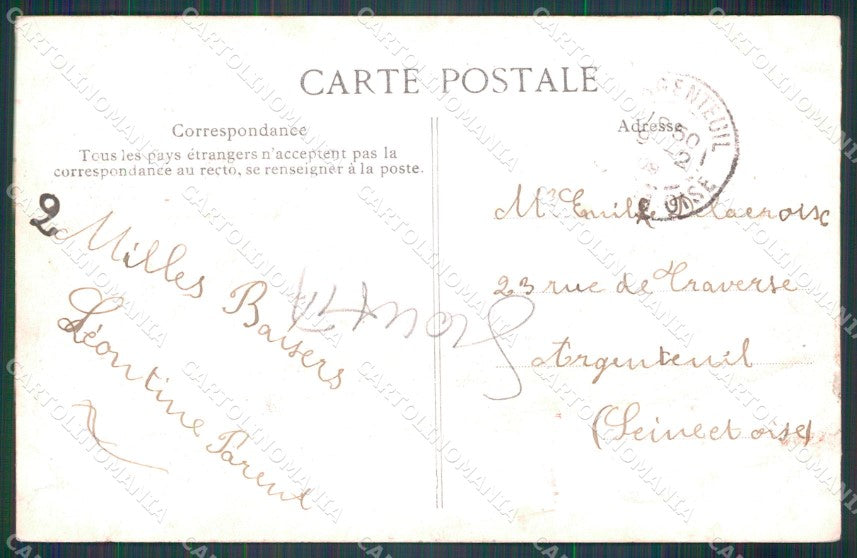 CARTE POSTALE
Correspondance
Tous les pays étrangers n'acceptent pas la
correspondance au recto, se renseigner à la poste.
Adresse
ARGENTEUIL
OISE
2
Milles Baisers
Léontine Parent
Mr Emile Delacroix
23 rue de Traverse
Argenteuil
(Seine et oise)
CARTOLINOMANIA